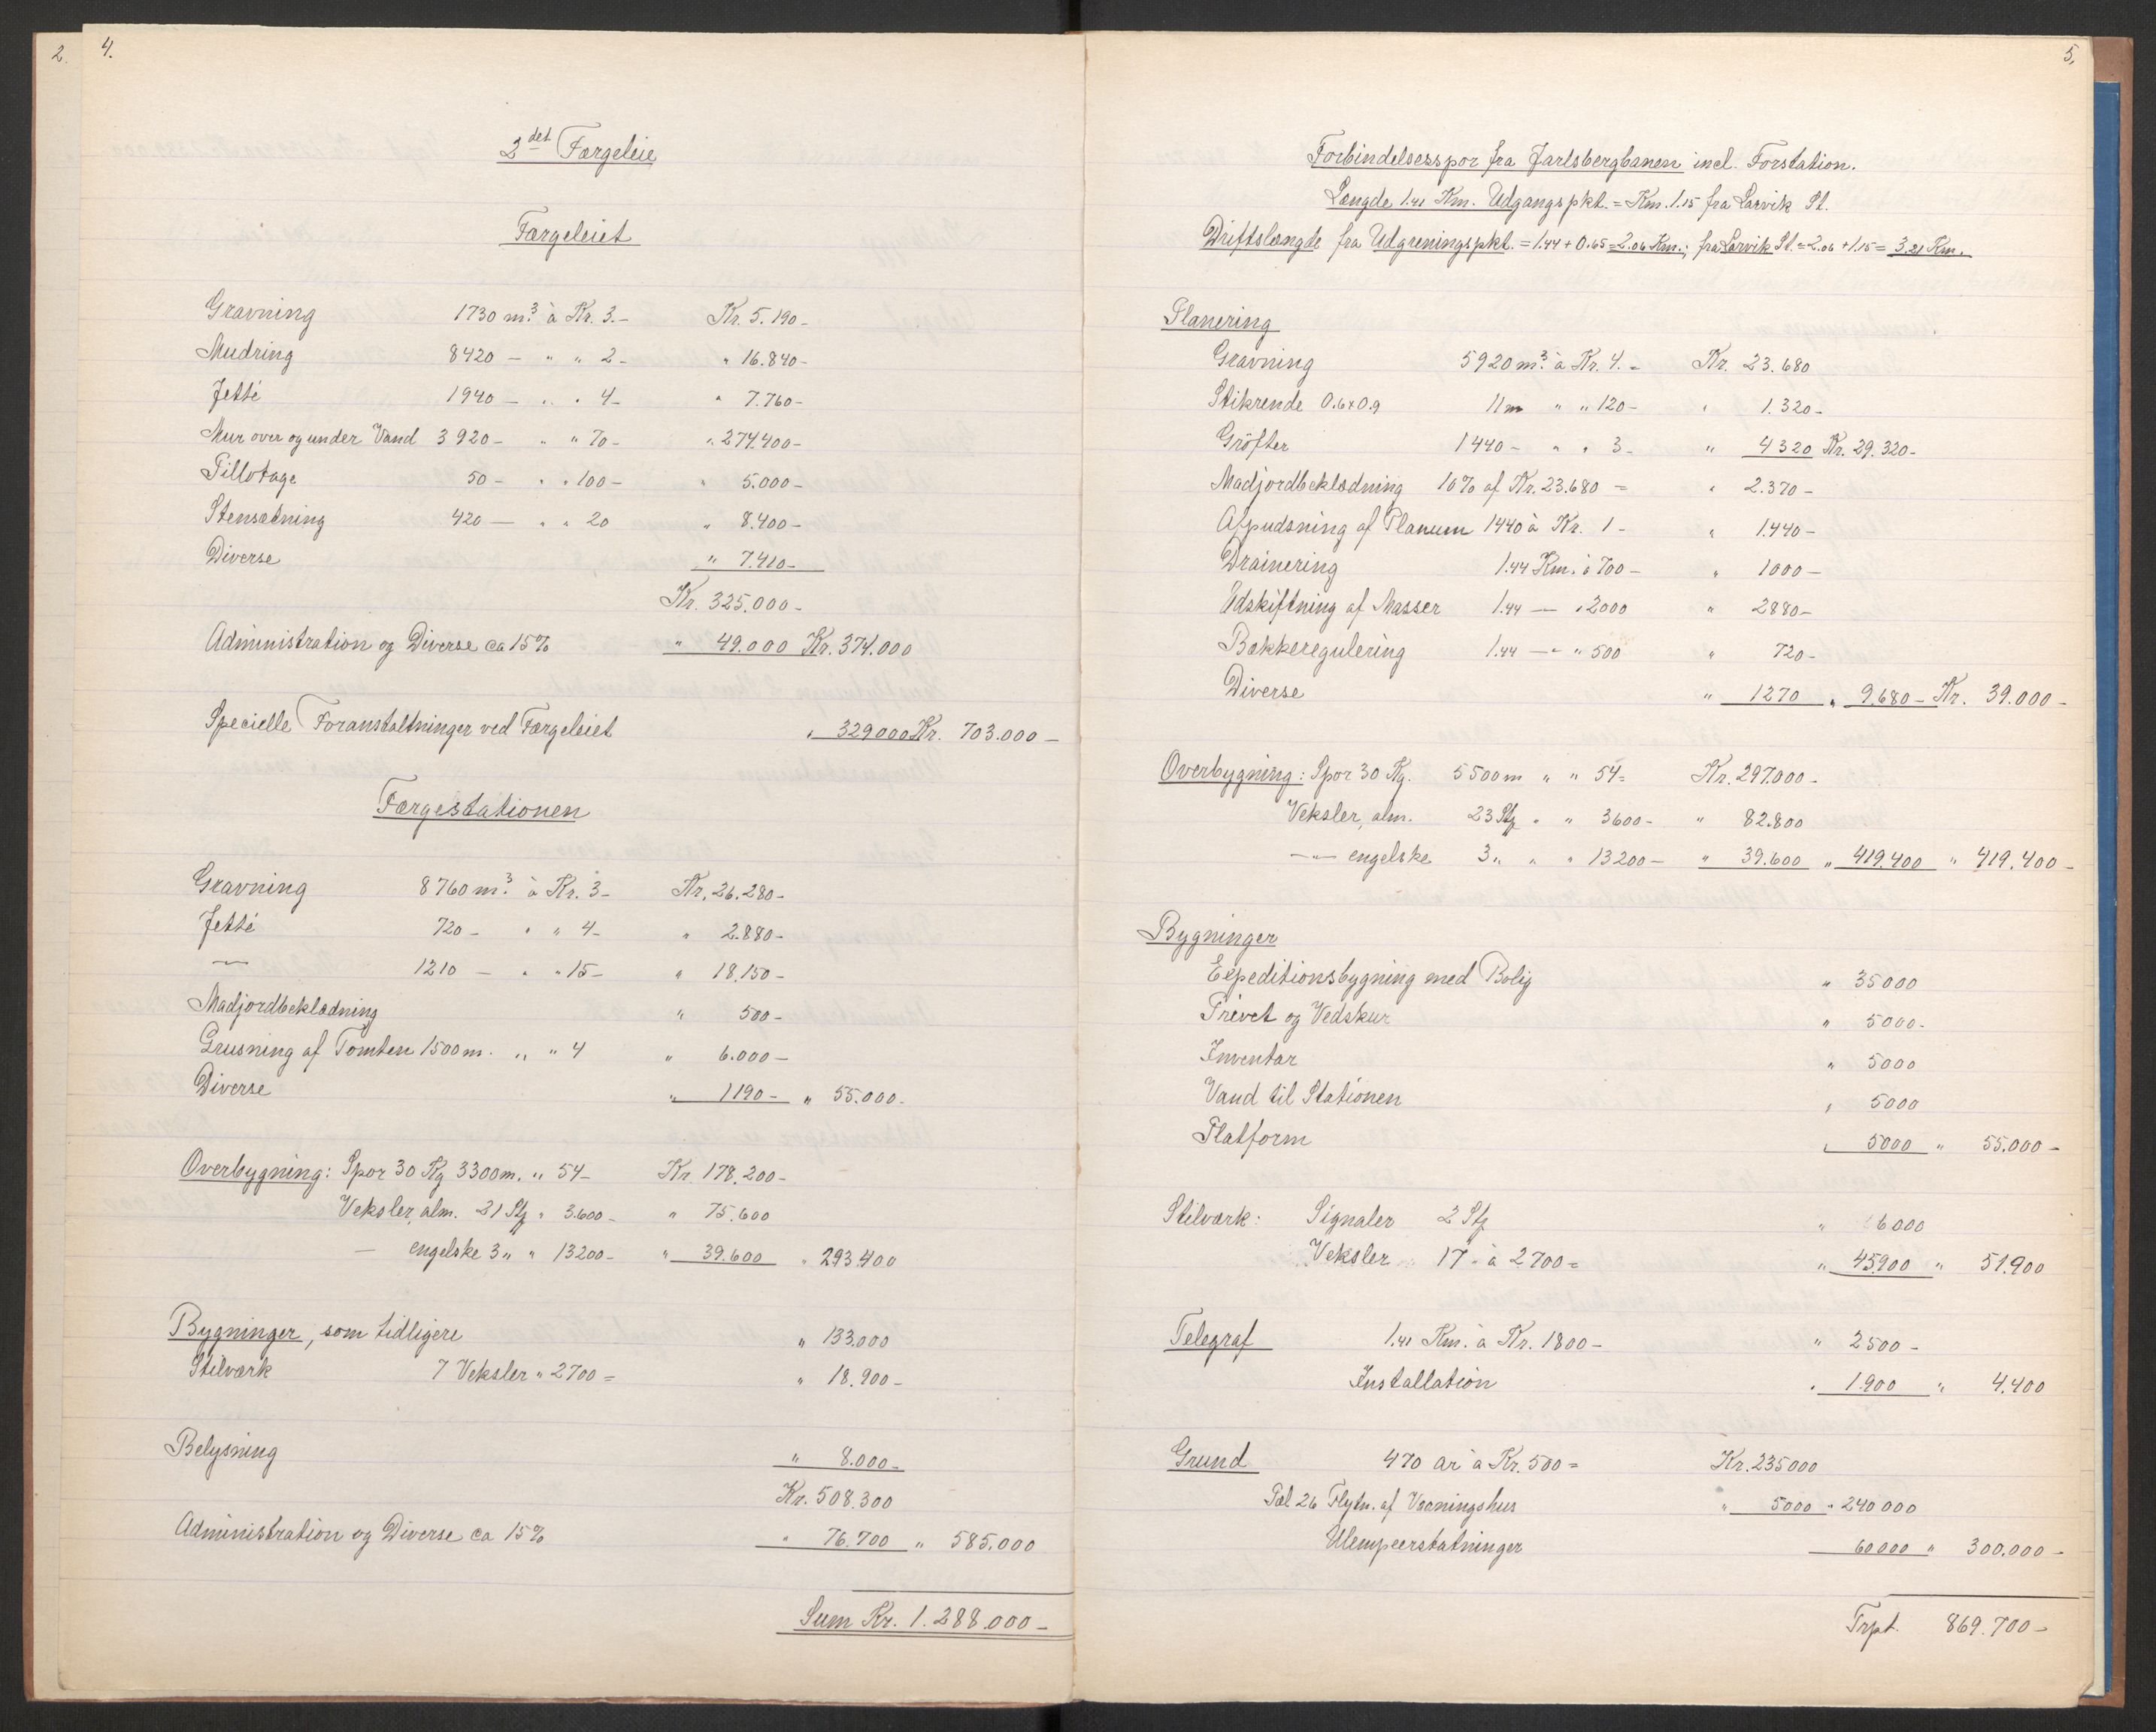 2. 4.
2det Færgeleie
Færgeleiet
Gravning 1730 m³. à Kr. 3.- Kr. 5.190-
Mudring 8420 — " " 2- " 16.840-
Jetté 1940 — " " 4- " 7.760-
Mur over og under Vand 3920- " " 70- " 274.400-
Pillotage 50- " " 100- " 5.000-
Stensætning 420 — " " 20 " 8.400-
Diverse " 7.410-
Kr. 325.000-
Administration og Diverse ca 15% " 49.000 Kr. 374.000
Specielle Foranstaltninger ved Færgeleiet " 329000 Kr. 703.000-
Færgestationen
Gravning 8760 m³. à Kr. 3- Kr. 26.280-
Jetté 720- " " 4- " 2.880-
—"— 1210 — " " 15- " 18.150-
Madjordbeklædning " 500-
Grusning af Tomten 1500 m. " " 4 " 6.000-
Diverse " 1190- " 55.000-
Overbygning: Spor 30 Kg 3300 m. " 54- Kr. 178.200-
Veksler, alm. 21 Stg " 3.600- " 75.600
— engelske 3 " " 13200- " 39.600 " 293.400
Bygninger, som tidligere " 133.000
Stilværk 7 Veksler " 2700= " 18.900-
Belysning " 8.000-
Kr. 508.300
Administration og Diverse ca 15% " 76.700 " 585.000
Sum Kr. 1.288.000-
5.
Forbindelsesspor fra Jarlsbergbanen incl. Forstation.
Længde 1.41 Km. Udgangspkt. = Km. 1.15 fra Larvik St.
Driftslængde fra Udgreningspkt. = 1.44 + 0.65 = 2.06 Km.; fra Larvik St. = 2.06 + 1.15 = 3.21 Km.
Planering
Gravning 5920 m³. à Kr. 4.= Kr. 23.680
Stikrende 0.6x0.9 11 m " " 120- " 1.320-
Grøfter 1440- " " 3- " 4320 Kr. 29.320-
Madjordbeklædning 10% af Kr. 23.680 = " 2.370-
Afpudsning af Planum 1440 à Kr. 1- " 1.440-
Drainering 1.44 Km. à 700- " 1000-
Udskiftning af Masser 1.44 — " 2000 " 2880-
Bækkeregulering 1.44 —"— " 500 " 720-
Diverse " 1270 " 9.680- Kr. 39.000-
Overbygning: Spor 30 Kg. 5500 m " " 54= Kr. 297.000-
Veksler, alm. 23 Stg " " 3600- " 82.800
—"— engelske 3 " " " 13200- " 39.600 " 419.400 " 419.400-
Bygninger
Expeditionsbygning med Bolig " 35000
Privet og Vedskur " 5000-
Inventar " 5000
Vand til Stationen " 5000
Platform " 5000 " 55.000-
Stilværk: Signaler 2 Stg " 6000
Veksler 17 - à 2700= " 45.900 " 51.900
Telegraf 1.41 Km. à Kr. 1800- " 2500-
Installation " 1.900 " 4.400
Grund 470 ar à Kr. 500= Kr. 235000
Pæl 26 Flytn. af Vaaningshus " 5000 " 240000
Ulempeerstatninger 60000 " 300.000-
Trpt. 869.700-